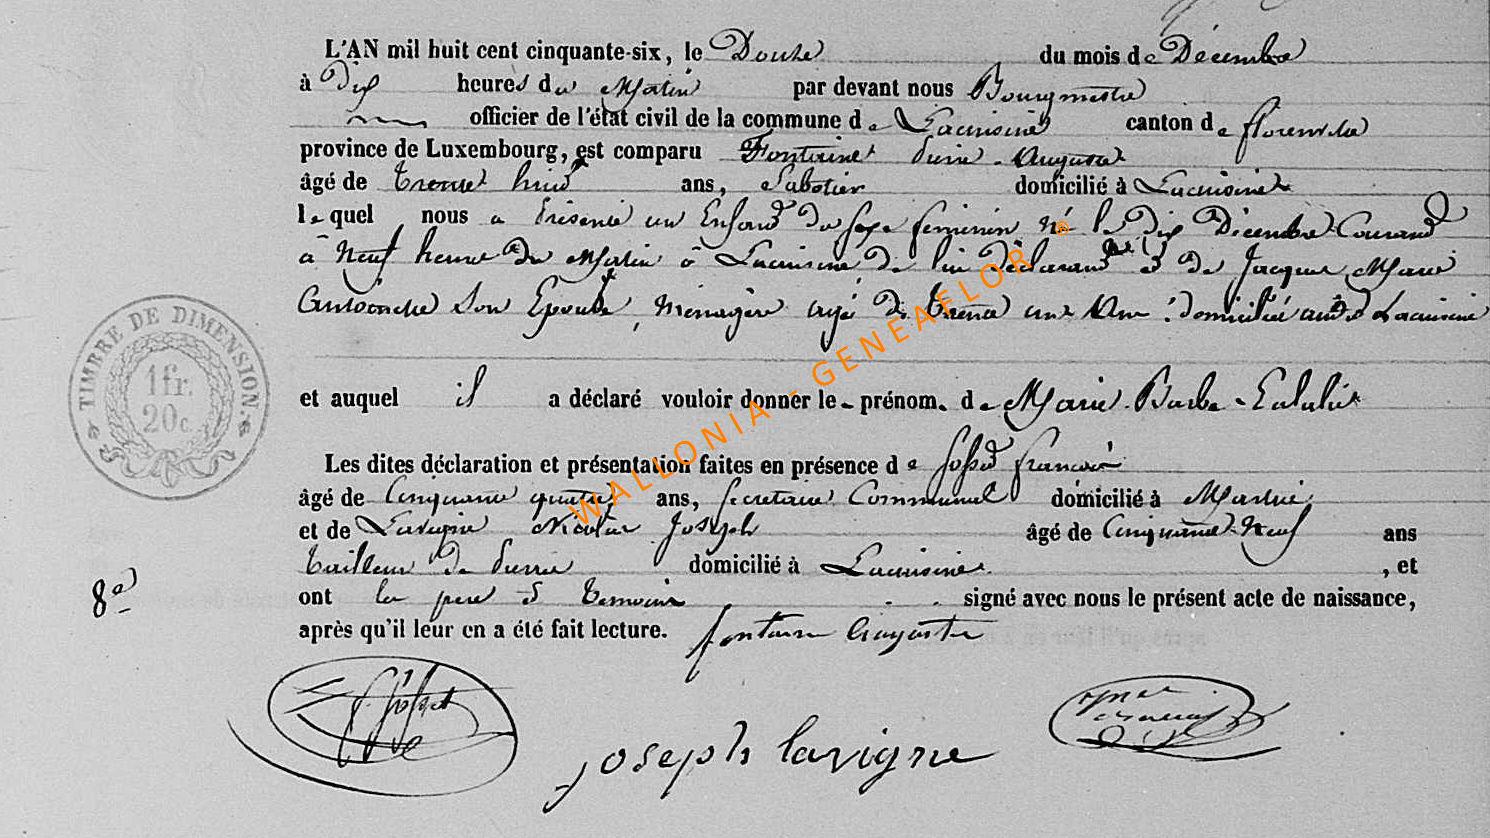 L'AN mil huit cent cinquante-six, le Douze du mois de Décembre
à Dix heures du Matin par devant nous Bourgmestre
officier de l'état civil de la commune de Lacuisine canton de florenville
province de Luxembourg, est comparu Fontaine Auguste
âgé de Trente huit ans, Sabotier domicilié à Lacuisine
lequel nous a Présenté un Enfant du sexe feminin né le Dix Décembre Courant
à Neuf heure du Matin à Lacuisine de lui Déclarant et de Jacque Marie
Son Epouse, Ménagère agé de trente un Ans domicilié Lacuisine
et auquel il a déclaré vouloir donner le prénom de Marie Barbe Eulalie
Les dites déclaration et présentation faites en présence de françois
âgé de Cinquante quatre ans, Secretaire Communal domicilié à
et de Lavigne Nicolas Joseph âgé de Cinquante Neuf ans
Tailleur de Pierre domicilié à Lacuisine , et
ont le pere & temoins signé avec nous le présent acte de naissance,
après qu'il leur en a été fait lecture. fontaine Auguste
8e
TIMBRE DE DIMENSION.
1fr.
20c.
joseph lavigne
WALLONIA - GENEAFLOR ®